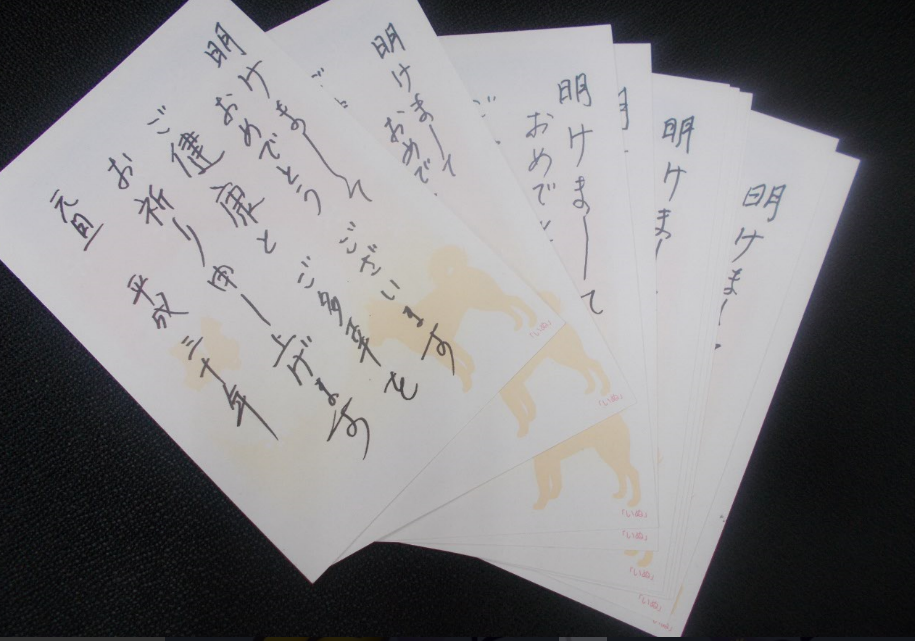 明けまして
おめでとうございます
ご健康とご多幸を
お祈り申し上げます
元旦 平成三十年
明けまして
おめで
ご
明けまして
おめでと
ご
明
明けまし
明けまし